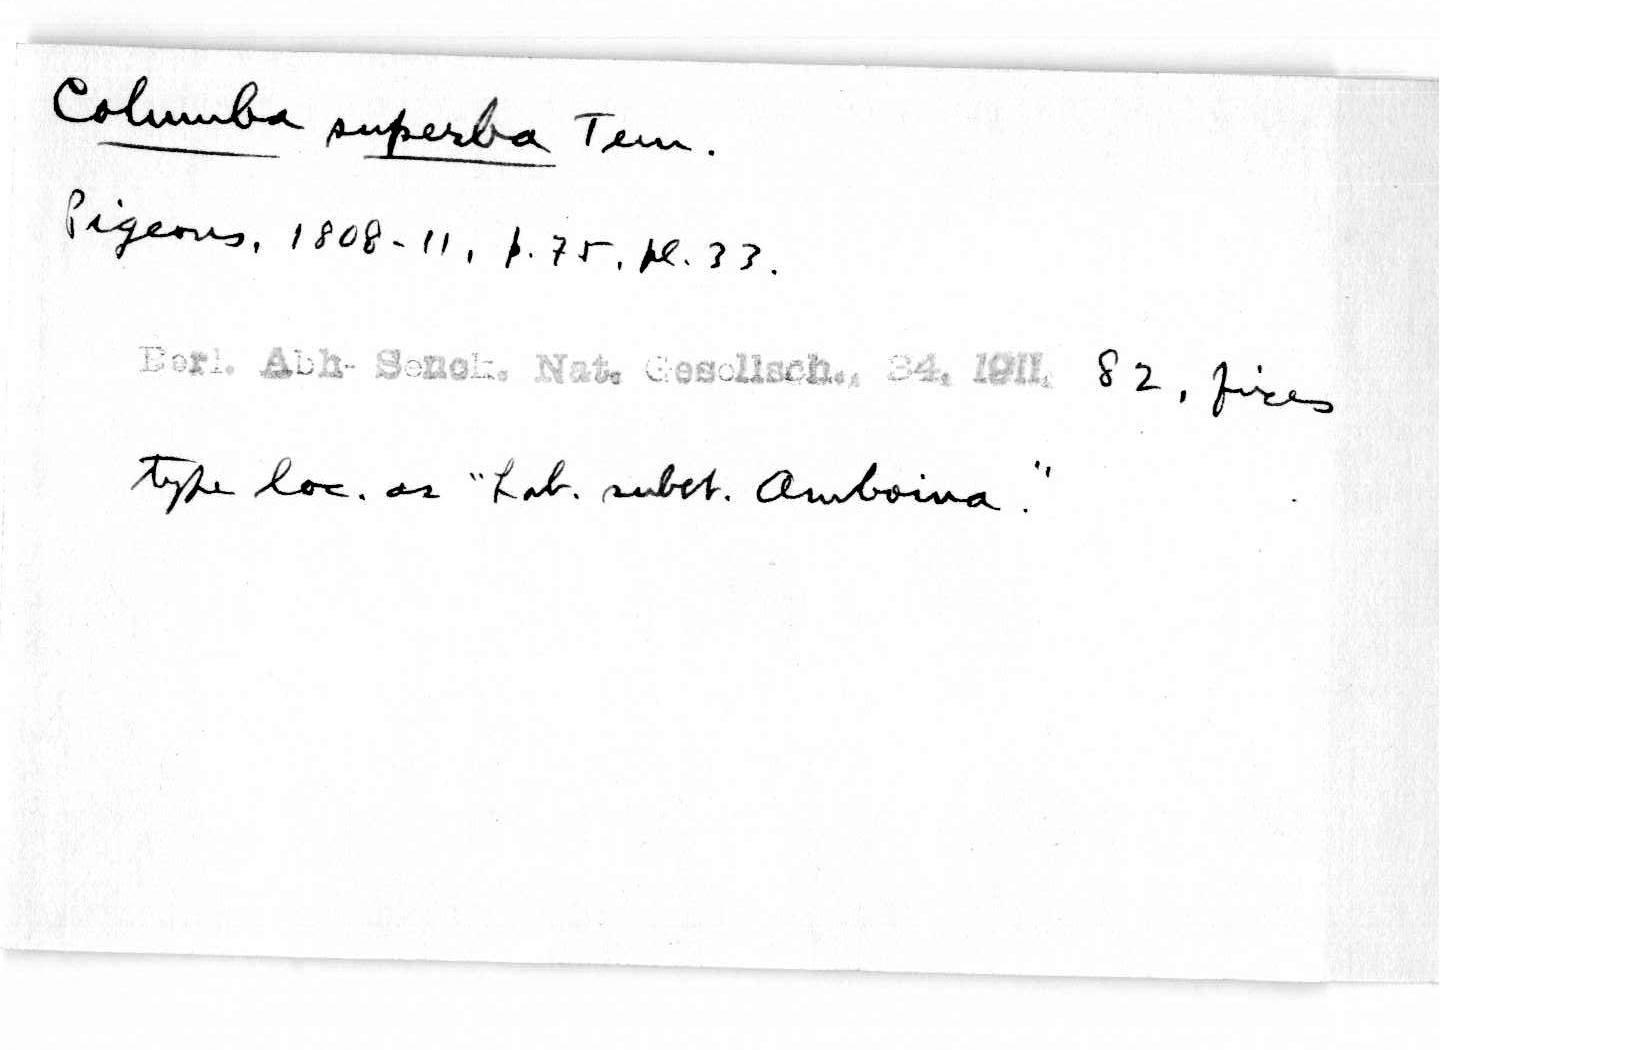 Columba superba Tem.
Pigeons, 1808-11, p. 75, pl. 33.
Berl. Abh- Senck. Nat. Gesellsch., 34, 1911, 82, fixes
type loc. as "hab. subst. Amboina."